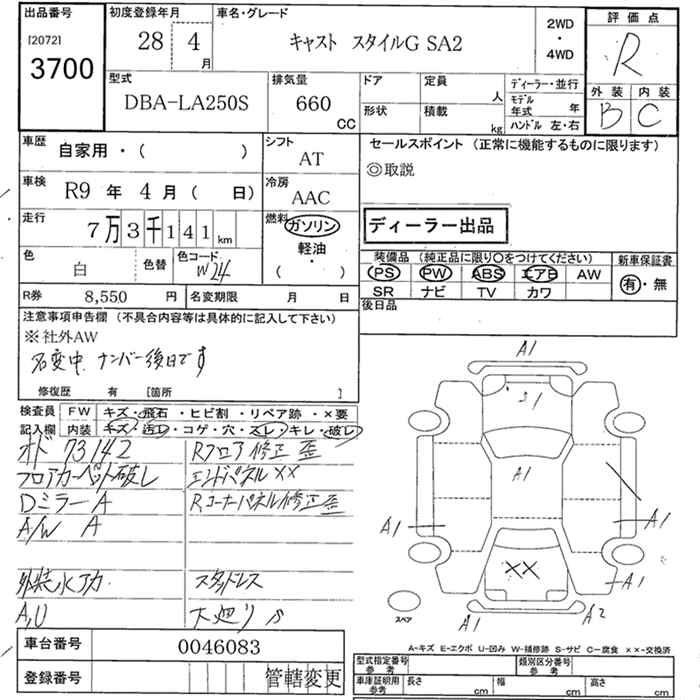 出品番号
[2072]
3700
初度登録年月
28 4
月
車名・グレード
キャスト スタイルG SA2
2WD
・
4WD
評価点
R
外装 内装
B C
型式
DBA-LA250S
排気量
660
CC
ドア
形状
定員
人
積載
kg
ディーラー・並行
モデル
年式 年
ハンドル 左・右
車歴
自家用・( )
シフト
AT
車検
R9 年 4 月 ( 日)
冷房
AAC
走行
7万3千141 km
燃料
ガソリン
軽油
・
( )
色
白
色替
色コード
W24
R券 8,550 円
名変期限 月 日
セールスポイント (正常に機能するものに限ります)
◎取説
ディーラー出品
装備品 (純正品に限り○をつけてください)
PS PW ABS エアB AW
SR ナビ TV カワ
新車保証書
有・無
後日品
注意事項申告欄 (不具合内容等は具体的に記入して下さい)
※社外AW
名変中 ナンバー後日です
修復歴 有 [箇所 ]
検査員
記入欄
FW キズ・飛石・ヒビ割・リペア跡・×要
内装 キズ・汚レ・コゲ・穴・スレ・キレ・破レ
オド 73142
フロアカーペット破レ
Dミラー A
A/W A
外装水アカ
A,U
Rフロア修正 歪
エンドパネル ××
Rコーナーパネル修正歪
スタッドレス
下廻りサ
A1
A1
A1
A1
A1
A1
A1
A2
××
スペア
車台番号 0046083
登録番号 管轄変更
A-キズ E-エクボ U-凹み W-補修跡 S-サビ C-腐食 ××-交換済
型式指定番号
参考
類別区分番号
参考
車庫証明用
参考
長さ cm
幅 cm
高さ cm